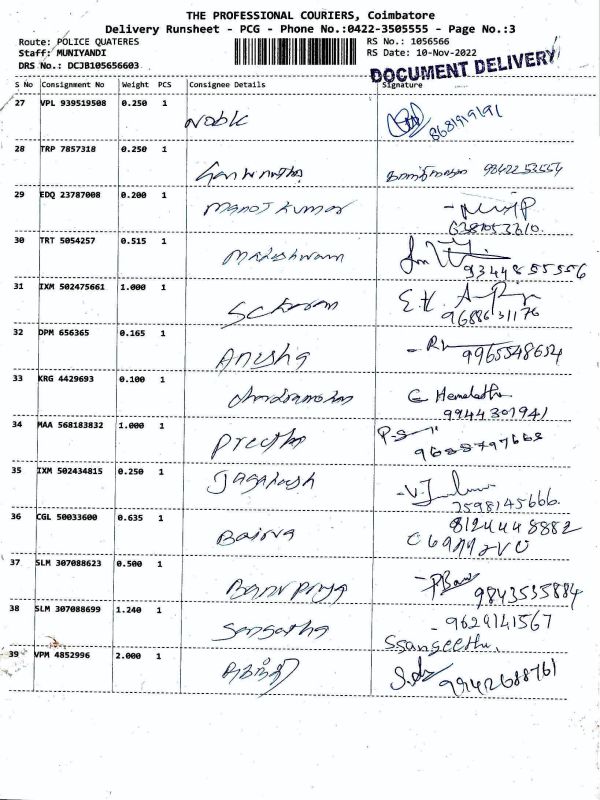 THE PROFESSIONAL COURIERS, Coimbatore
Delivery Runsheet - PCG - Phone No.:0422-3505555 - Page No.:3
Route: POLICE QUATERES RS No.: 1056566
Staff: MUNIYANDI RS Date: 10-Nov-2022
DRS No.: DCJB105656603 DOCUMENT DELIVERY
S No Consignment No Weight PCS Consignee Details Signature
27 VPL 939519508 0.250 1 Noble
8681919191
28 TRP 7857318 0.250 1 9842253554
29 EDQ 23787008 0.200 1 Manoj kumar
6381053210
30 TRT 5054257 0.515 1 Madeshwaran
9344855556
31 IXM 502475661 1.000 1
9688631176
32 DPM 656365 0.165 1 Anusha 9965548654
33 KRG 4429693 0.100 1 Chandramohan Hemalatha
9944301941
34 MAA 568183832 1.000 1 Preetha
35 IXM 502434815 0.250 1 Jagadesh
7598145666
36 CGL 50033600 0.635 1 8124448882
37 SLM 307088623 0.500 1 Banu Priya
9843535884
38 SLM 307088699 1.240 1 9629141567
39 VPM 4852996 2.000 1
9942688761